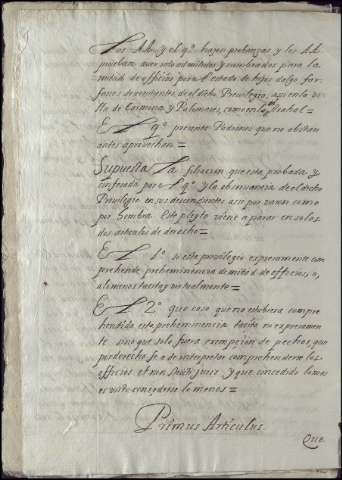 Los AA. y el qº. hazen probanzas, y los AA.
prueban aver sido admitidos y nombrados para la
mitad de officios por el estado de hijos dalgo
descendientes de el dicho Privilegio, assi en la vi-
lla de Espinosa y Palomares, como en la
El qº. presento Padrones que no obstan
antes aprovechan =
Supuesta La filiacion que esta probada y
confesada por el qº. y la observancia de el dicho
Privilegio en sus descendientes assi por varon como
por hembra. Este pleyto viene a parar en solos
dos articulos de derecho =
El 1º. si este privilegio expresamente com
prehende preheminencia de mitad de officios, o,
alomenos tacita y virtualmente =
El 2º. que caso que no estubiera compre
hendida esta preheminencia tacita ni expresamen
te sino que solo fuera exempcion de pechos, que
por derecho se a de interpretar comprehenderse los
officios juris, y que concedido lo mas
es visto concederse lo menos =
Primus Articulus
Que